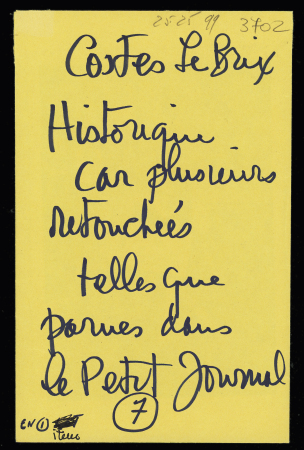 25 25 99
3702
Costes Le Brix
Historique
car plusieurs
retouchées
telles que
parues dans
Le Petit Journal
7
EN 1
items